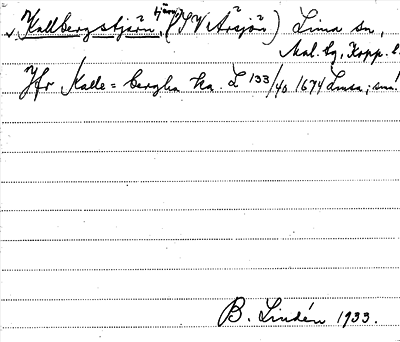 v. Kallbergstjärn, tjärn (SV Arsjön) Lima sn,
Mal. tg, Kopp. l.
Jfr Kalle = berghn ka. L 133/40 1674 Lmsa; smn!
B. Lindén 1933.